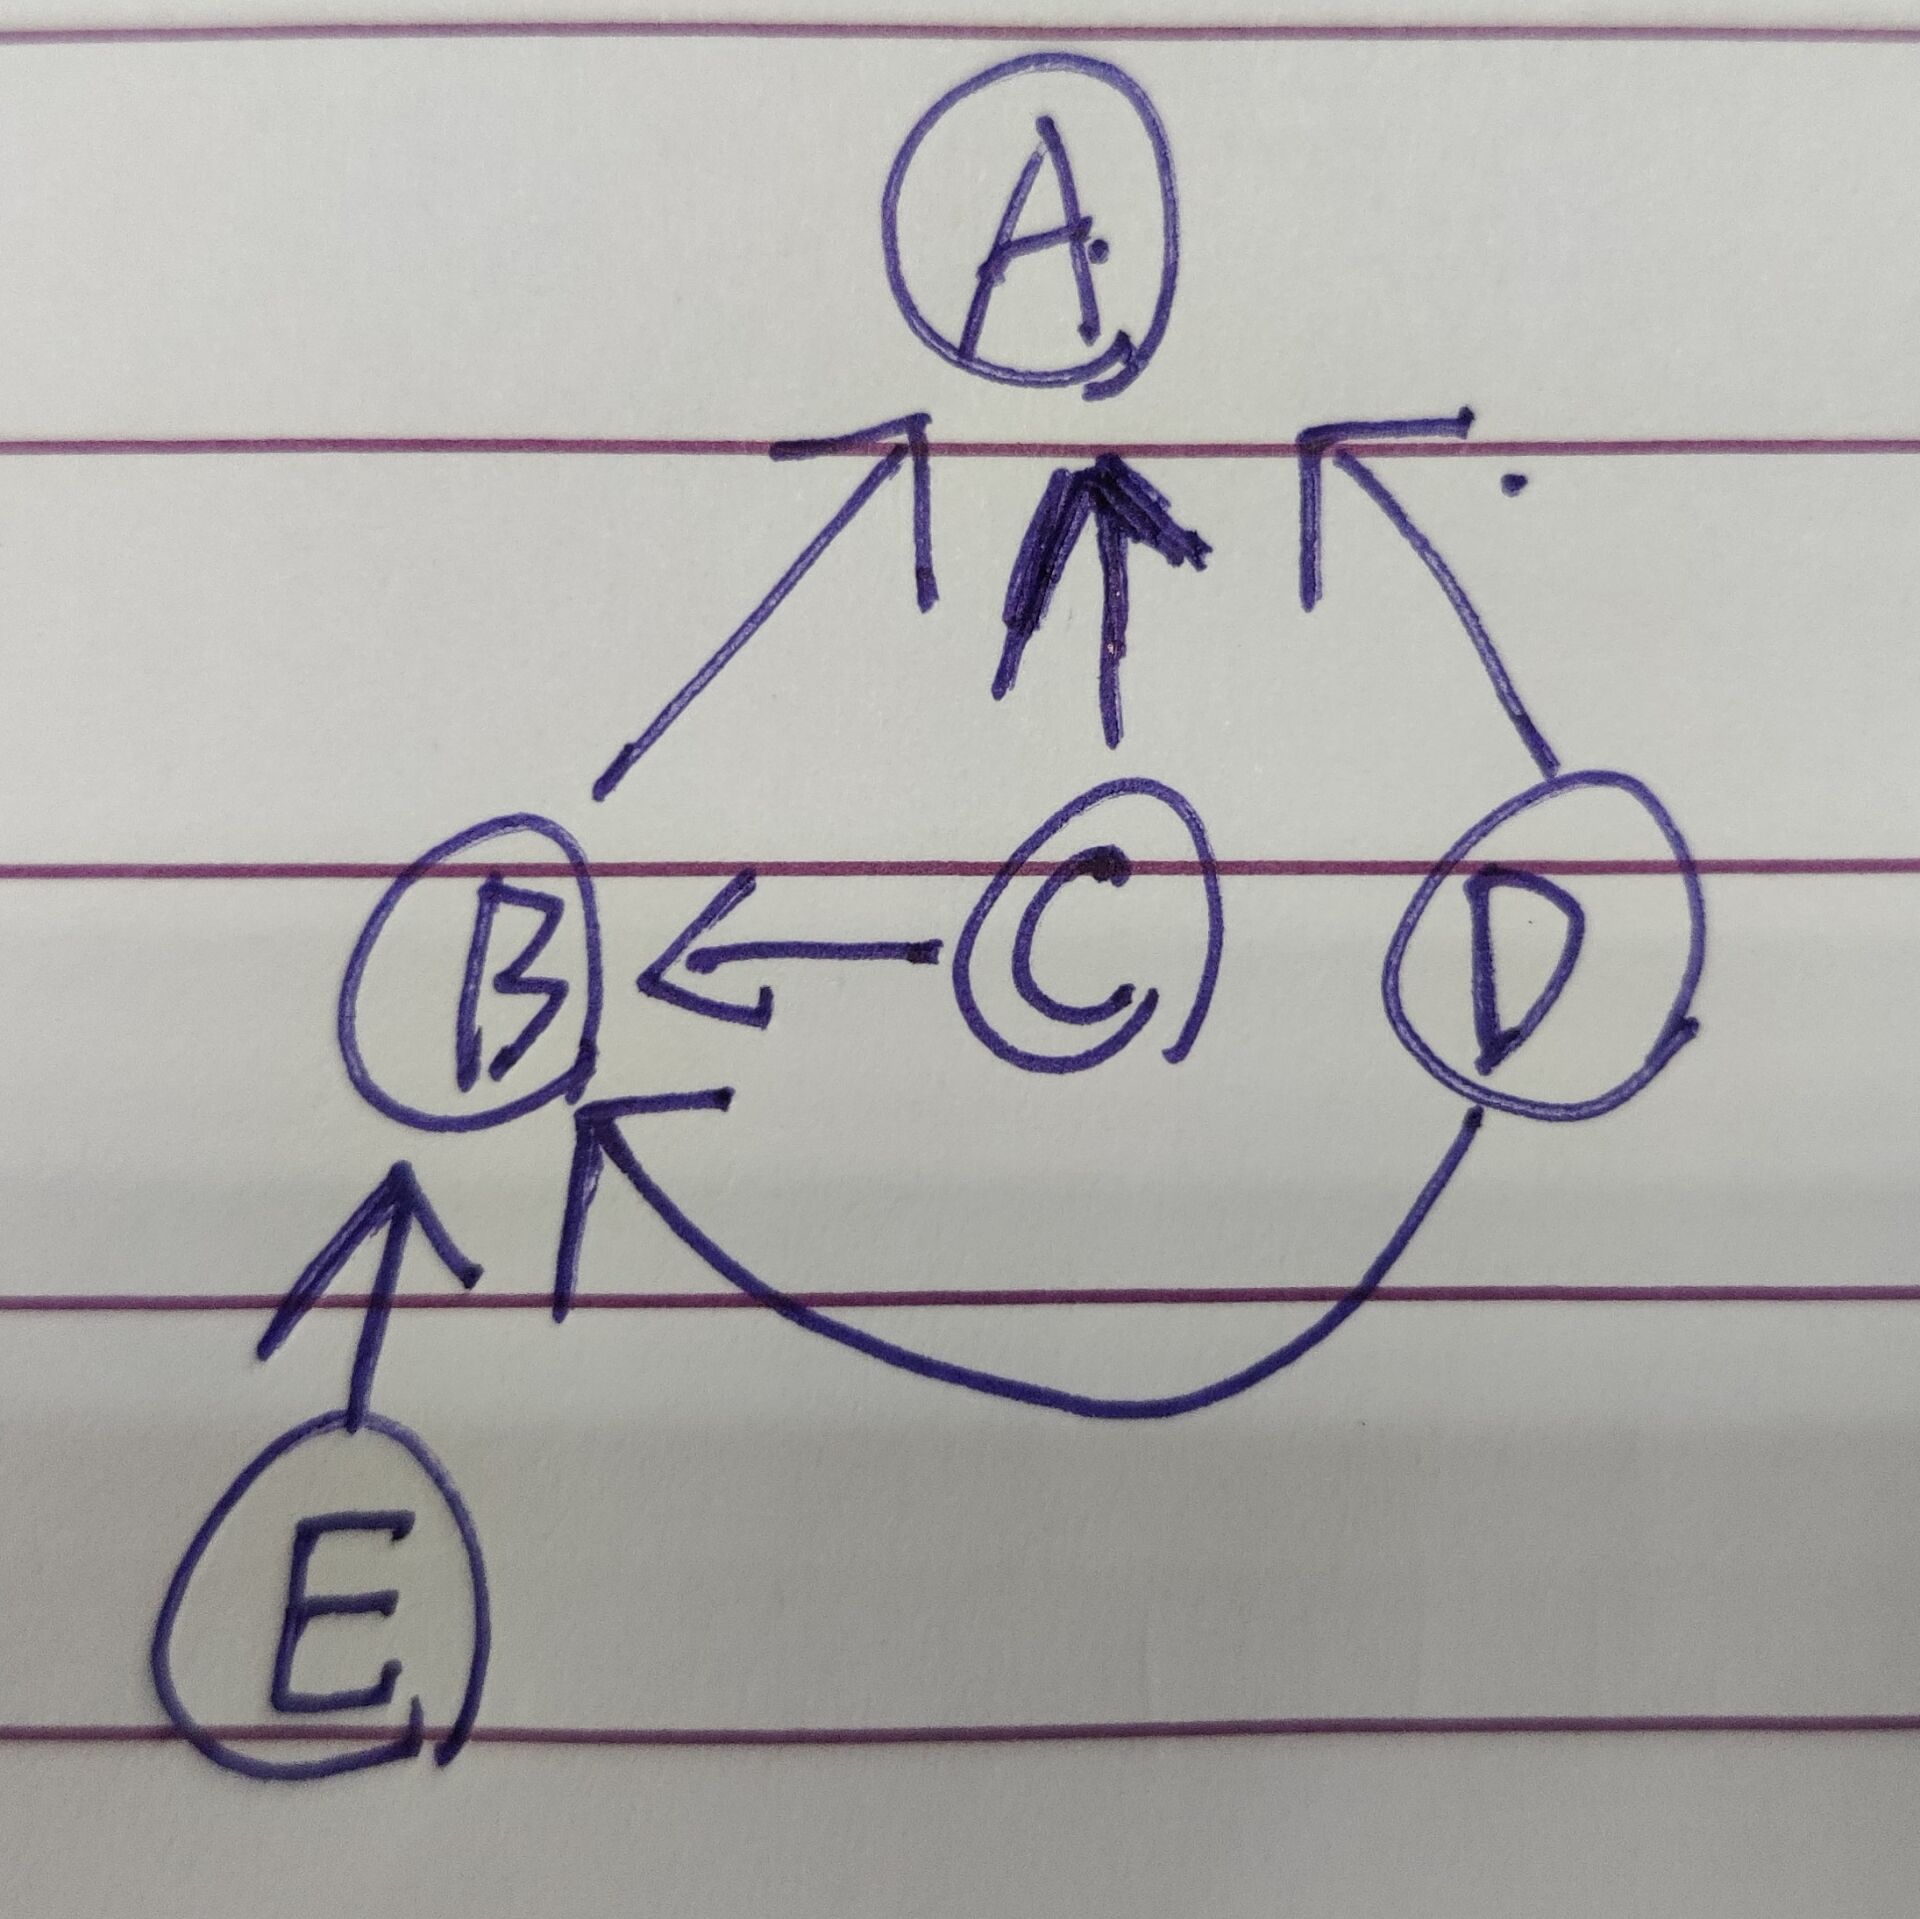 A
B C D
E